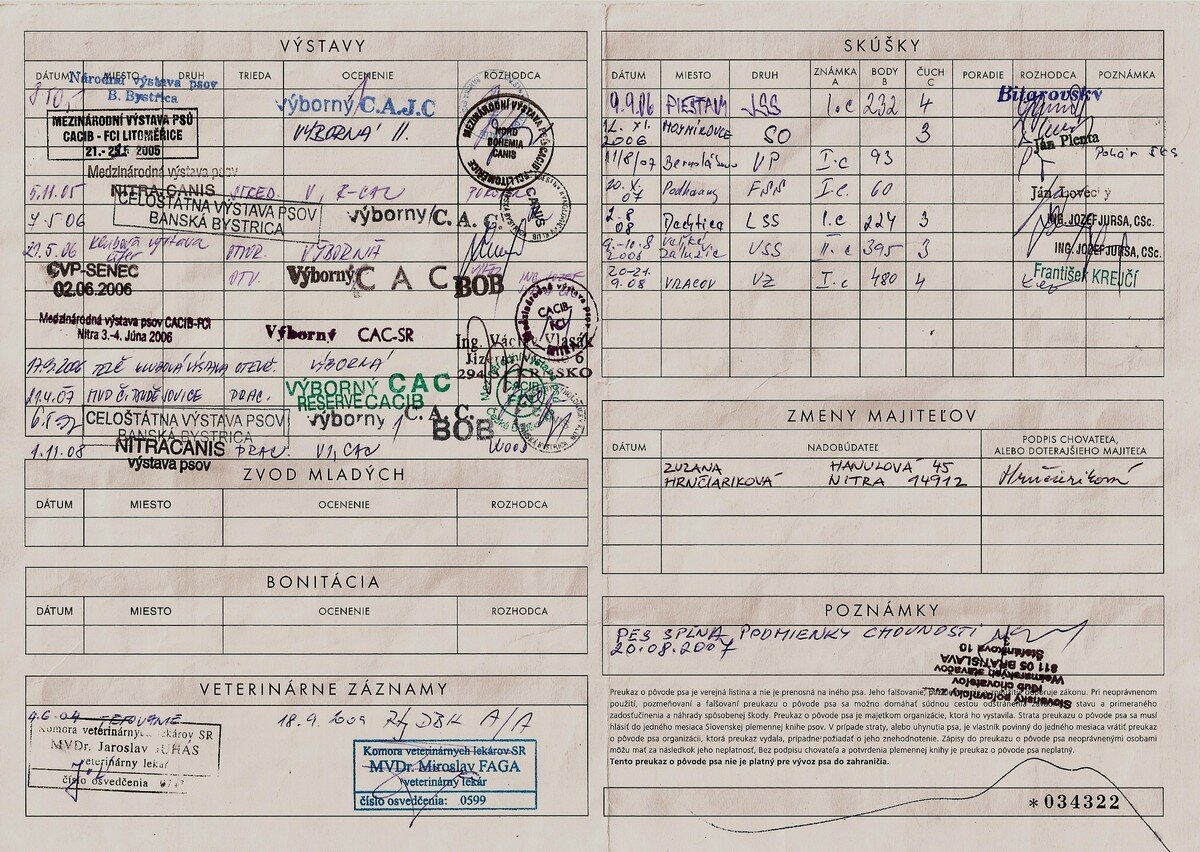 VÝSTAVY
DÁTUM MIESTO DRUH TRIEDA OCENENIE ROZHODCA
Národná výstava psov
B. Bystrica
výborný C.A.J.C
MEZINÁRODNÍ VÝSTAVA PSŮ
CACIB - FCI LITOMĚŘICE
2005
VÝBORNÁ II.
MEZINÁRODNÍ VÝSTAVA PSŮ
NORD
BOHEMIA
CANIS
CACIB-FCI LITOMĚŘICE
Medzinárodná výstava psov
5.11.05 NITRA CANIS
CELOŠTÁTNA VÝSTAVA PSOV
BANSKÁ BYSTRICA
7.5.06 výborný C. A. C.
CANIS
21.5.06 Klubová výstava OTVR. VÝBORNÁ
CVP-SENEC
02.06.2006
OTV. Výborný C A C BOB
Medzinárodná výstava psov CACIB-FCI
Nitra 3.-4. Júna 2006
Výborný CAC-SR
CACIB
FCI
NITRA
Ing. Václ Vlasák
Jiz 6
294 RISKO
17.9.2006 TELČ KLUBOVÁ VÝSTAVA OTEVŘ. VÝBORNÁ
21.4.07 MVP Č. BUDĚJOVICE PRAC. VÝBORNÝ CAC
RESERVE CACIB
CELOŠTÁTNA VÝSTAVA PSOV
BANSKÁ BYSTRICA
výborný C. A. C. BOB
1.11.08 NITRACANIS
výstava psov
PRAC. V1, CAC Wood
ZVOD MLADÝCH
DÁTUM MIESTO OCENENIE ROZHODCA
BONITÁCIA
DÁTUM MIESTO OCENENIE ROZHODCA
VETERINÁRNE ZÁZNAMY
TETOVANIE
18.9.2009 DBK A/A
Komora veterinárnych lekárov SR
MVDr. Jaroslav JUHÁS
veterinárny lekár
číslo osvedčenia
Komora veterinárnych lekárov SR
MVDr. Miroslav FAGA
veterinárny lekár
číslo osvedčenia: 0599
SKÚŠKY
DÁTUM MIESTO DRUH ZNÁMKA A BODY B ČUCH C PORADIE ROZHODCA POZNÁMKA
9.9.06 PIEŠŤANY JSS I.c 232 4 Bitarovský
12. XI. 2006 MOJMÍROVCE SO 3
Ján Plenta
11/8/07 VP I.c 93
20. X. 07 Podhájany FSS I.c. 60
Ján Lovecký
2.8 08 Dechtice LSS I.c 224 3 ING. JOZEF JURSA, CSc.
9.-10.8 2008 VEĽKÉ ZÁLUŽIE VSS II.c 395 3 ING. JOZEF JURSA, CSc.
20-21. 9.08 VRACOV VZ I.c 480 4 František KREJČÍ
ZMENY MAJITEĽOV
DÁTUM NADOBÚDATEĽ PODPIS CHOVATEĽA, ALEBO DOTERAJŠIEHO MAJITEĽA
ZUZANA HANULOVÁ 45
HRNČIARIKOVÁ NITRA 14912 Hrnčiariková
POZNÁMKY
PES SPĹŇA PODMIENKY CHOVNOSTI
20.08.2007
Slovenský poľovnícky zväz
Klub chovateľov
Weimarských stavačov
811 05 BRATISLAVA
Štefánikova 10
3
Preukaz o pôvode psa je verejná listina a nie je prenosná na iného psa. Jeho falšovanie, zákonu. Pri neoprávnenom
použití, pozmeňovaní a falšovaní preukazu o pôvode psa sa možno domáhať súdnou cestou odstránenia stavu a primeraného
zadosťučinenia a náhrady spôsobenej škody. Preukaz o pôvode psa je majetkom organizácie, ktorá ho vystavila. Strata preukazu o pôvode psa sa musí
hlásiť do jedného mesiaca Slovenskej plemennej knihe psov. V prípade straty, alebo uhynutia psa, je vlastník povinný do jedného mesiaca vrátiť preukaz
o pôvode psa organizácii, ktorá preukaz vydala, prípadne požiadať o jeho znehodnotenie. Zápisy do preukazu o pôvode psa neoprávnenými osobami
môžu mať za následok jeho neplatnosť. Bez podpisu chovateľa a potvrdenia plemennej knihy je preukaz o pôvode psa neplatný.
Tento preukaz o pôvode psa nie je platný pre vývoz psa do zahraničia.
*034322